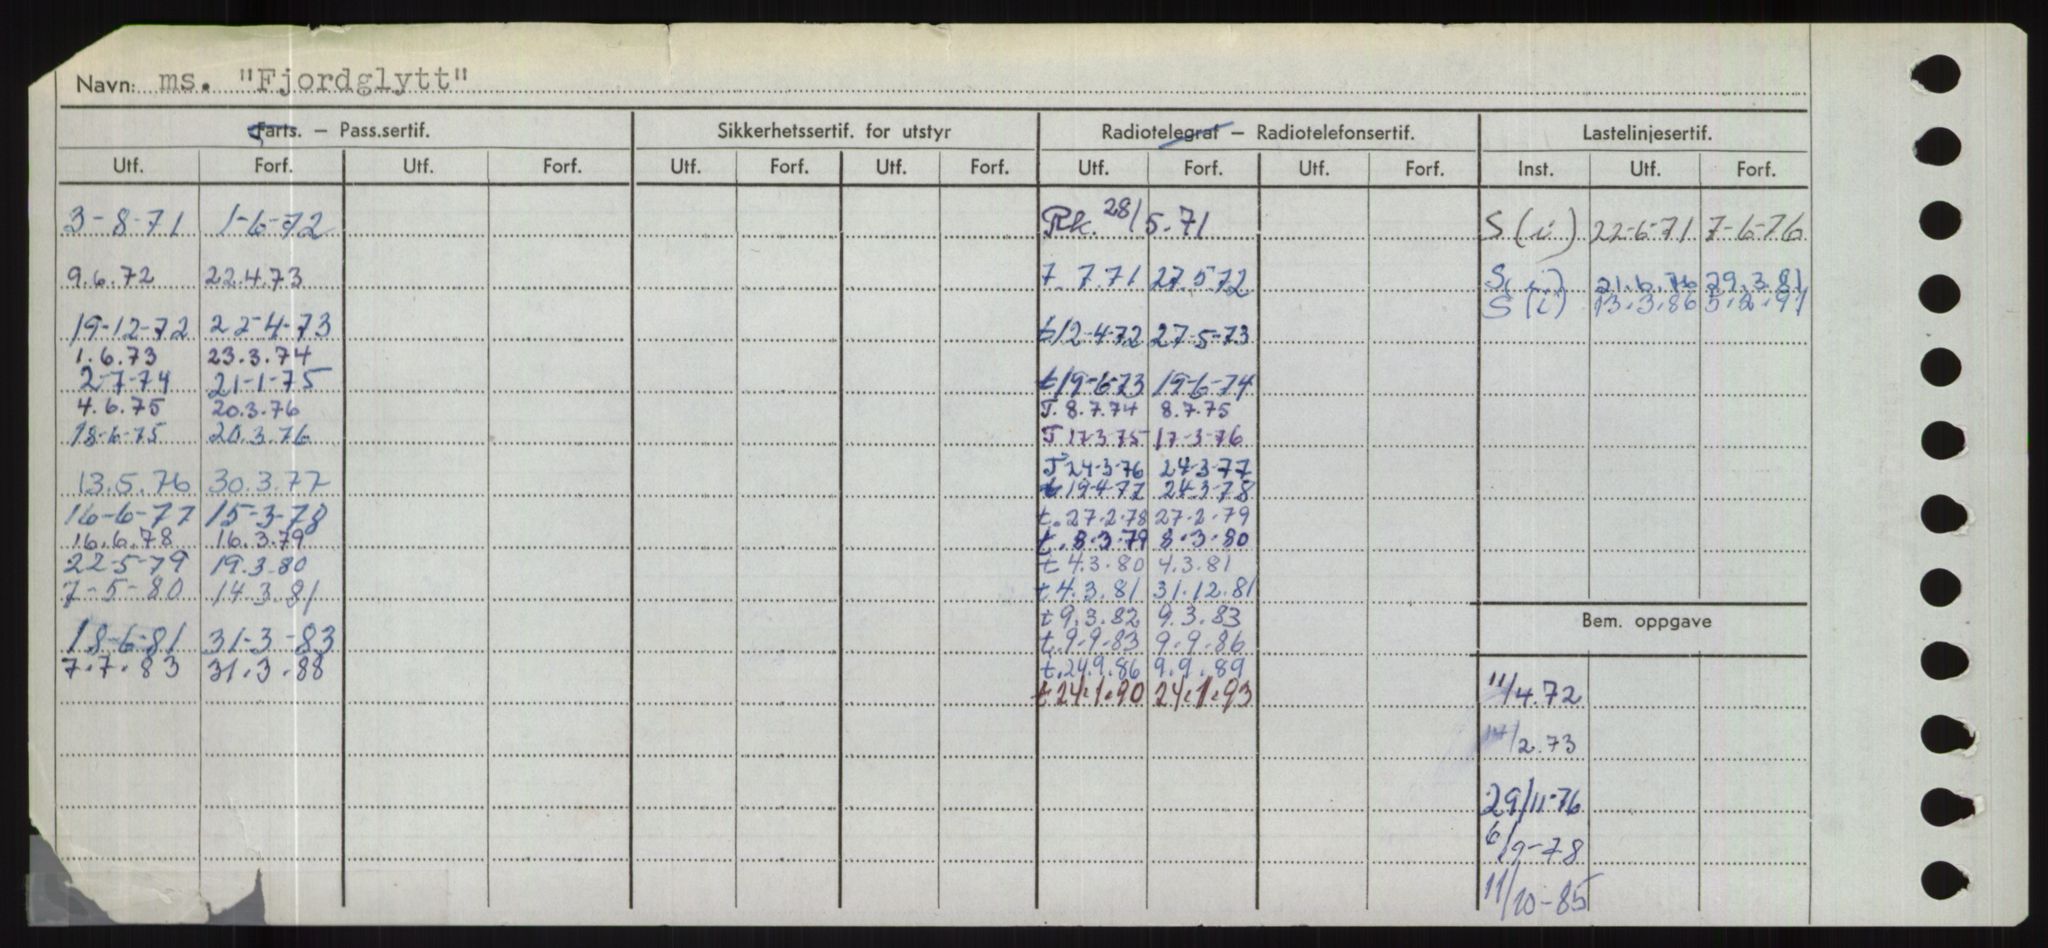 Navn: ms. "Fjordglytt"
Farts. – Pass.sertif. Sikkerhetssertif. for utstyr Radiotelegraf – Radiotelefonsertif. Lastelinjesertif.
Utf. Forf. Utf. Forf. Utf. Forf. Utf. Forf. Utf. Forf. Utf. Forf. Inst. Utf. Forf.
3-8-71 1-6-72 Rk. 28/5.71 S (i) 22-6-71 7-6-76
9.6.72 22.4.73 7.7.71 27.5.72 S (i) 21.6.76 29.3.81
S (i) 13.3.86 5.2.91
19-12-72 22-4-73 t 12-4-72 27-5-73
1.6.73 23.3.74
2-7-74 21-1-75 t 19-6-73 19-6-74
4.6.75 20.3.76 T. 8.7.74 8.7.75
18-6-75 20.3.76 T 17-3-75 17-3-76
T 24-3-76 24-3-77
13.5.76 30.3.77 t 19-4-77 24-3-78
16-6-77 15-3-78 t. 27-2-78 27-2-79
16.6.78 16.3.79 t. 8-3-79 8-3-80
22-5-79 19.3.80 t 4.3.80 4.3.81
7-5-80 14.3.81 t 4.3.81 31.12.81
t 9.3.82 9.3.83
Bem. oppgave
18-6-81 31-3-83 t. 9-9-83 9.9.86
7.7.83 31.3.88 t. 24.9.86 9.9.89
t 24.1.90 24.1.93 11/4.72
/2.73
29/11-76
6/9-78
11/10-85